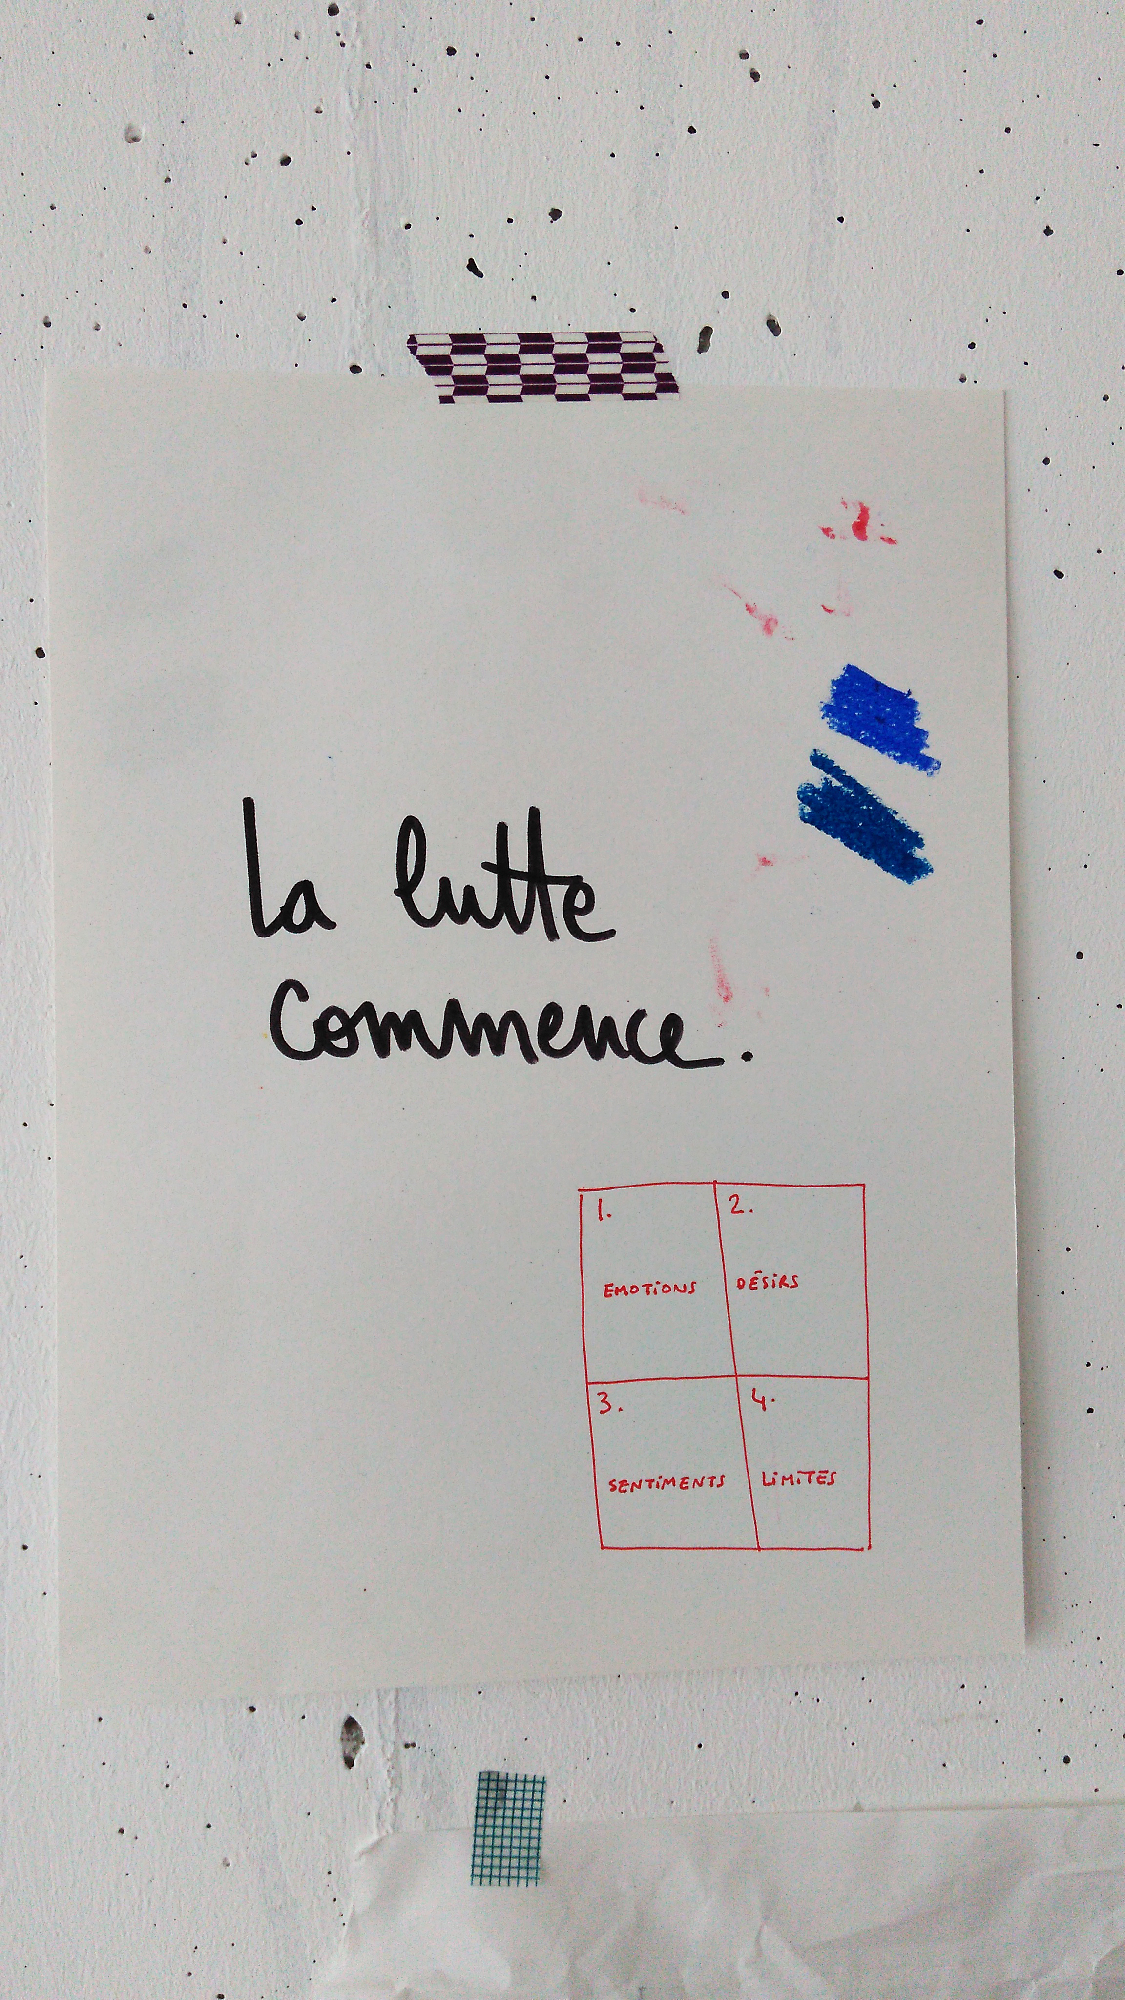 La lutte
commence.
1.
2.
EMOTIONS
DÉSIRS
3.
4.
SENTIMENTS
LIMITES